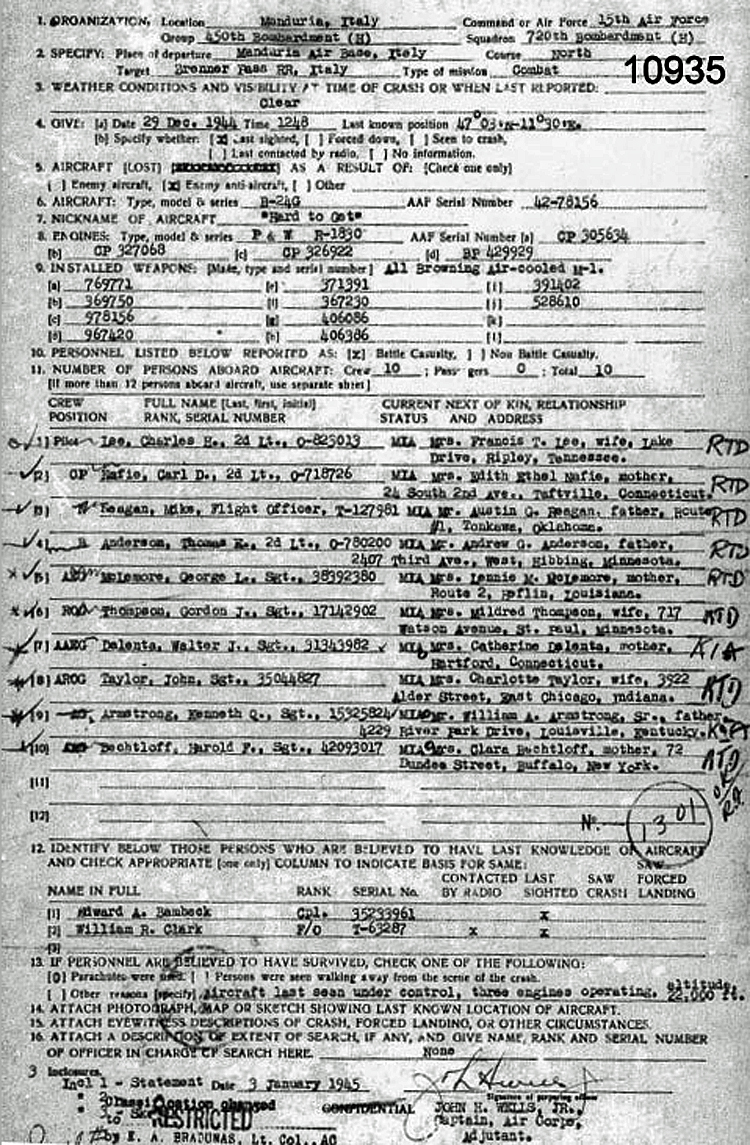 1. ORGANIZATION, Location Manduria, Italy Command or Air Force 15th Air Force
Group 450th Bombardment (H) Squadron 720th Bombardment (H)
2. SPECIFY: Place of departure Manduria Air Base, Italy Course North
Target Brenner Pass RR, Italy Type of mission Combat
10935
3. WEATHER CONDITIONS AND VISIBILITY AT TIME OF CRASH OR WHEN LAST REPORTED:
Clear
4. GIVE: [a] Date 29 Dec. 1944 Time 1248 Last known position 47°03'N-11°30'E.
[b] Specify whether: [x] Last sighted, [ ] Forced down, [ ] Seen to crash,
[ ] Last contacted by radio, [ ] No information.
5. AIRCRAFT [LOST] AS A RESULT OF: [Check one only]
[ ] Enemy aircraft, [x] Enemy anti-aircraft, [ ] Other
6. AIRCRAFT: Type, model & series B-24G AAF Serial Number 42-78156
7. NICKNAME OF AIRCRAFT "Hard to Get"
8. ENGINES: Type, model & series P & W R-1830 AAF Serial Number [a] CP 305634
[b] CP 327068 [c] CP 326922 [d] BP 429929
9. INSTALLED WEAPONS: [Make, type and serial number] All Browning Air-cooled M-1.
[a] 769771 [e] 371391 [i] 391402
[b] 369750 [f] 367230 [j] 528610
[c] 978156 [g] 406086 [k]
[d] 967420 [h] 406386 [l]
10. PERSONNEL LISTED BELOW REPORTED AS: [x] Battle Casualty, [ ] Non Battle Casualty.
11. NUMBER OF PERSONS ABOARD AIRCRAFT: Crew 10 ; Passengers 0 ; Total 10
[If more than 12 persons aboard aircraft, use separate sheet]
CREW FULL NAME [Last, first, initial] CURRENT NEXT OF KIN, RELATIONSHIP
POSITION RANK, SERIAL NUMBER STATUS AND ADDRESS
[1] Pilot Lee, Charles E., 2d Lt., O-825013 MIA Mrs. Francis T. Lee, wife, Lake RTD
Drive, Ripley, Tennessee.
[2] CP Nafie, Carl D., 2d Lt., O-718726 MIA Mrs. Edith Ethel Nafie, mother, RTD
24 South 2nd Ave., Taftville, Connecticut.
[3] N Reagan, Mike, Flight Officer, T-127981 MIA Mr. Austin G. Reagan, father, Route RTD
#1, Tonkawa, Oklahoma.
[4] B Anderson, Thomas E., 2d Lt., O-780200 MIA Mr. Andrew G. Anderson, father, RTD
2407 Third Ave., West, Hibbing, Minnesota.
[5] McLemore, George L., Sgt., 38392380 MIA Mrs. Lennie M. McLemore, mother, RTD
Route 2, Heflin, Louisiana.
[6] ROG Thompson, Gordon J., Sgt., 17142902 MIA Mrs. Mildred Thompson, wife, 717 RTD
Watson Avenue, St. Paul, Minnesota.
[7] AAEG Dalenta, Walter J., Sgt., 31343982 MIA Mrs. Catherine Dalenta, mother, KIA
Hartford, Connecticut.
[8] AROG Taylor, John, Sgt., 35044827 MIA Mrs. Charlotte Taylor, wife, 3922 RTD
Alder Street, East Chicago, Indiana.
[9] Armstrong, Kenneth Q., Sgt., 15325824 MIA Mr. William A. Armstrong, Sr., father,
4229 River Park Drive, Louisville, Kentucky.
[10] Bechtloff, Harold F., Sgt., 42093017 MIA Mrs. Clara Bechtloff, mother, 72 RTD
Dundee Street, Buffalo, New York.
[11]
[12] No. 1301
12. IDENTIFY BELOW THOSE PERSONS WHO ARE BELIEVED TO HAVE LAST KNOWLEDGE OF AIRCRAFT
AND CHECK APPROPRIATE [one only] COLUMN TO INDICATE BASIS FOR SAME:
CONTACTED LAST SAW SAW FORCED
NAME IN FULL RANK SERIAL No. BY RADIO SIGHTED CRASH LANDING
[1] Edward A. Bambeck Cpl. 35233961 x
[2] William R. Clark F/O T-63287 x x
[3]
13. IF PERSONNEL ARE BELIEVED TO HAVE SURVIVED, CHECK ONE OF THE FOLLOWING:
[0] Parachutes were used. [ ] Persons were seen walking away from the scene of the crash.
[ ] Other reasons [specify] Aircraft last seen under control, three engines operating, altitude, 22,000 ft.
14. ATTACH PHOTOGRAPH, MAP OR SKETCH SHOWING LAST KNOWN LOCATION OF AIRCRAFT.
15. ATTACH EYEWITNESS DESCRIPTIONS OF CRASH, FORCED LANDING, OR OTHER CIRCUMSTANCES.
16. ATTACH A DESCRIPTION OF EXTENT OF SEARCH, IF ANY, AND GIVE NAME, RANK AND SERIAL NUMBER
OF OFFICER IN CHARGE OF SEARCH HERE. None
3 Inclosures.
Incl 1 - Statement Date 3 January 1945
Signature of preparing officer
Classification changed CONFIDENTIAL JOHN H. WELLS, JR.,
to RESTRICTED Captain, Air Corps,
by E. A. BRADUNAS, Lt. Col., AC Adjutant.